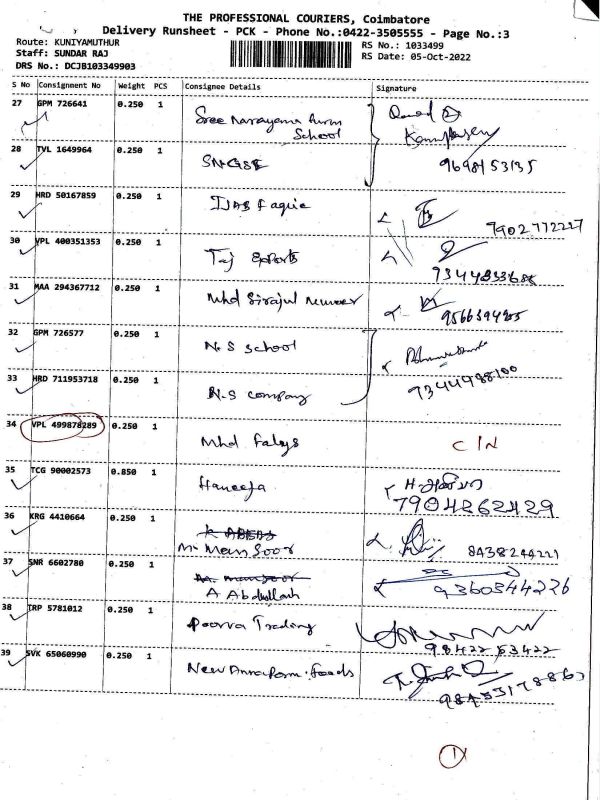 THE PROFESSIONAL COURIERS, Coimbatore
Delivery Runsheet - PCK - Phone No.:0422-3505555 - Page No.:3
Route: KUNIYAMUTHUR
Staff: SUNDAR RAJ
DRS No.: DCJB103349903
RS No.: 1033499
RS Date: 05-Oct-2022
S No Consignment No Weight PCS Consignee Details Signature
27 GPM 726641 0.250 1 Sree Narayana
School
28 TVL 1649964 0.250 1 SNGSE 9698153135
29 HRD 50167859 0.250 1 7902772227
30 VPL 400351353 0.250 1 Taj
31 MAA 294367712 0.250 1 Mhd Sirajul
32 GPM 726577 0.250 1 N.S School
33 HRD 711953718 0.250 1 N.S company 7344988100
34 VPL 499878289 0.250 1 Mhd C/N
35 TCG 90002573 0.850 1 Haneefa
7904262429
36 KRG 4410664 0.250 1
Mr Mansoor 8438244221
37 SNR 6602780 0.250 1
A Abdullah 9360344226
38 TRP 5781012 0.250 1 Poorva Trading
98422 53422
39 SVK 65060990 0.250 1 New Foods
1